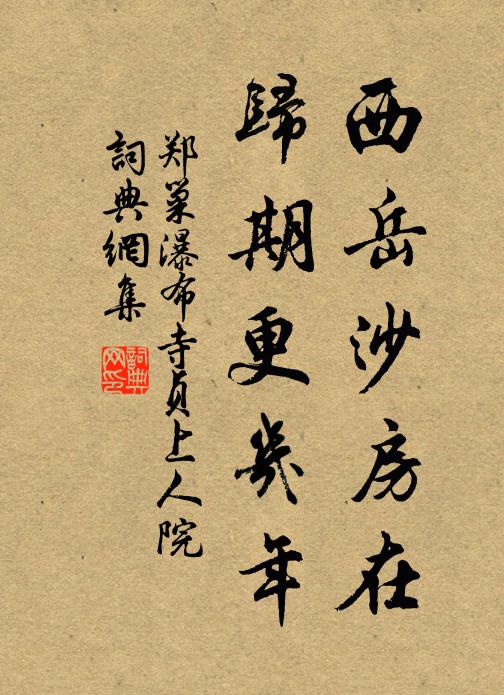 西岳沙房在
歸期更幾年
郑巢瀑布寺貞上人院
詞典網集
詞典网印